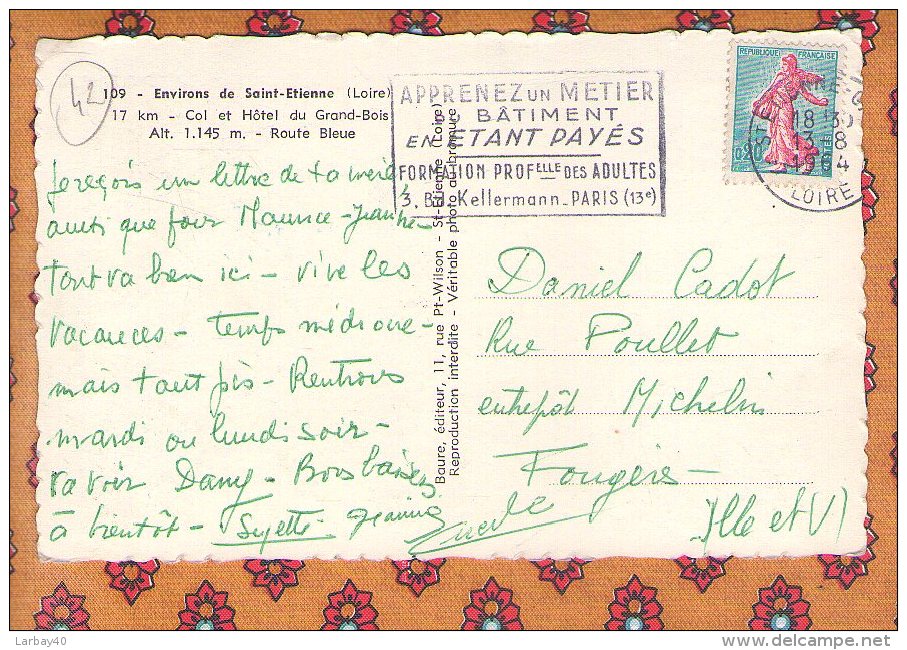 42
109 - Environs de Saint-Etienne (Loire)
17 km - Col et Hôtel du Grand-Bois
Alt. 1.145 m. - Route Bleue
APPRENEZ UN METIER
DU BÂTIMENT
EN ETANT PAYÉS
FORMATION PROFELLE DES ADULTES
3, Bd Kellermann_PARIS (13e)
REPUBLIQUE FRANÇAISE
18 H 30
13-8
1964
LOIRE
Je reçois un lettre de ta mère
ainsi que pour Maurice - Jeannine -
tout va bien ici - vive les
vacances - temps médiocre -
mais tant pis - Rentrons
mardi ou lundi soir -
va voir Dany - Bons baisers
à bientôt - Suzette Jeannine
Baure, éditeur, 11, rue Pt-Wilson - St-Etienne (Loire)
Reproduction interdite - Véritable photo au bromure
Daniel Cadot
Rue Poullet
entrepôt Michelin
Fougères -
Ille et V)
Larbay40
www.delcampe.net